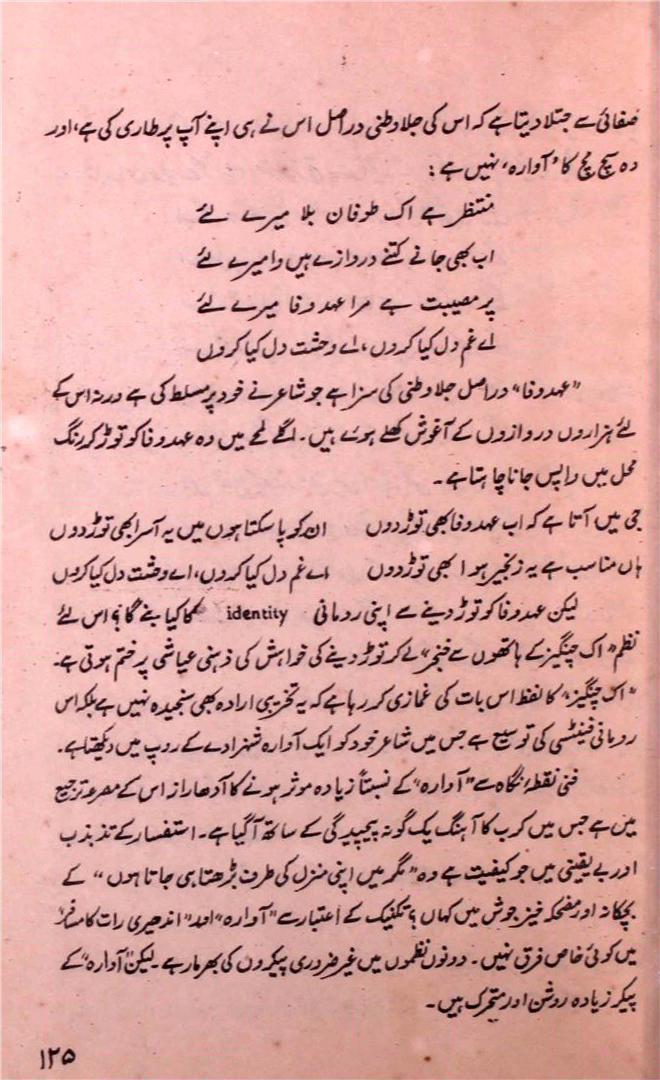 صفائی سے جتلا دیتا ہے کہ اس کی جلا وطنی دراصل اس نے ہی اپنے آپ پر طاری کی ہے، اور
وہ سچ مچ کا ’آوارہ‘ نہیں ہے:
منتظر ہے اک طوفان بلا میرے لئے
اب بھی جانے کتنے دروازے ہیں وا میرے لئے
پر مصیبت ہے مرا عہد وفا میرے لئے
اے غم دل کیا کروں، اے وحشت دل کیا کروں
”عہد وفا“ دراصل جلا وطنی کی سزا ہے جو شاعر نے خود پر مسلط کی ہے ورنہ اس کے
لئے ہزاروں دروازوں کے آغوش کھلے ہوئے ہیں۔ اگلے لمحے میں وہ عہد وفا کو توڑ کر رنگ
محل میں واپس جانا چاہتا ہے۔
جی میں آتا ہے کہ اب عہد وفا بھی توڑ دوں ان کو پا سکتا ہوں میں یہ آسرا بھی توڑ دوں
ہاں مناسب ہے یہ زنجیر ہوا بھی توڑ دوں اے غم دل کیا کروں، اے وحشت دل کیا کروں
لیکن عہد وفا کو توڑ دینے سے اپنی رومانی identity کا کیا بنے گا؟ اس لئے
نظم ”اک چنگیز کے ہاتھوں سے خنجر“ لے کر توڑ دینے کی خواہش کی ذہنی عیاشی پر ختم ہوتی ہے۔
”اک چنگیز“ کا لفظ اس بات کی غمازی کر رہا ہے کہ یہ تخریبی ارادہ بھی سنجیدہ نہیں ہے بلکہ اس
رومانی فینٹسی کی توسیع ہے جس میں شاعر خود کو ایک آوارہ شہزادے کے روپ میں دیکھتا ہے۔
فنی نقطۂ نگاہ سے ”آوارہ“ کے نسبتاً زیادہ موثر ہونے کا آدھا راز اس کے مصرعہ ترجیع
میں ہے جس میں کرب کا آہنگ یک گونہ پیچیدگی کے ساتھ آ گیا ہے۔ استفسار کے تذبذب
اور بے یقینی میں جو کیفیت ہے وہ ”مگر میں اپنی منزل کی طرف بڑھتا ہی جاتا ہوں“ کے
بچکانہ اور مضحکہ خیز جوش میں کہاں؟ تکنیک کے اعتبار سے ”آوارہ“ اور ”اندھیری رات کا مسافر“
میں کوئی خاص فرق نہیں۔ دونوں نظموں میں غیر ضروری پیکروں کی بھرمار ہے۔ لیکن ”آوارہ“ کے
پیکر زیادہ روشن اور متحرک ہیں۔
۱۲۵